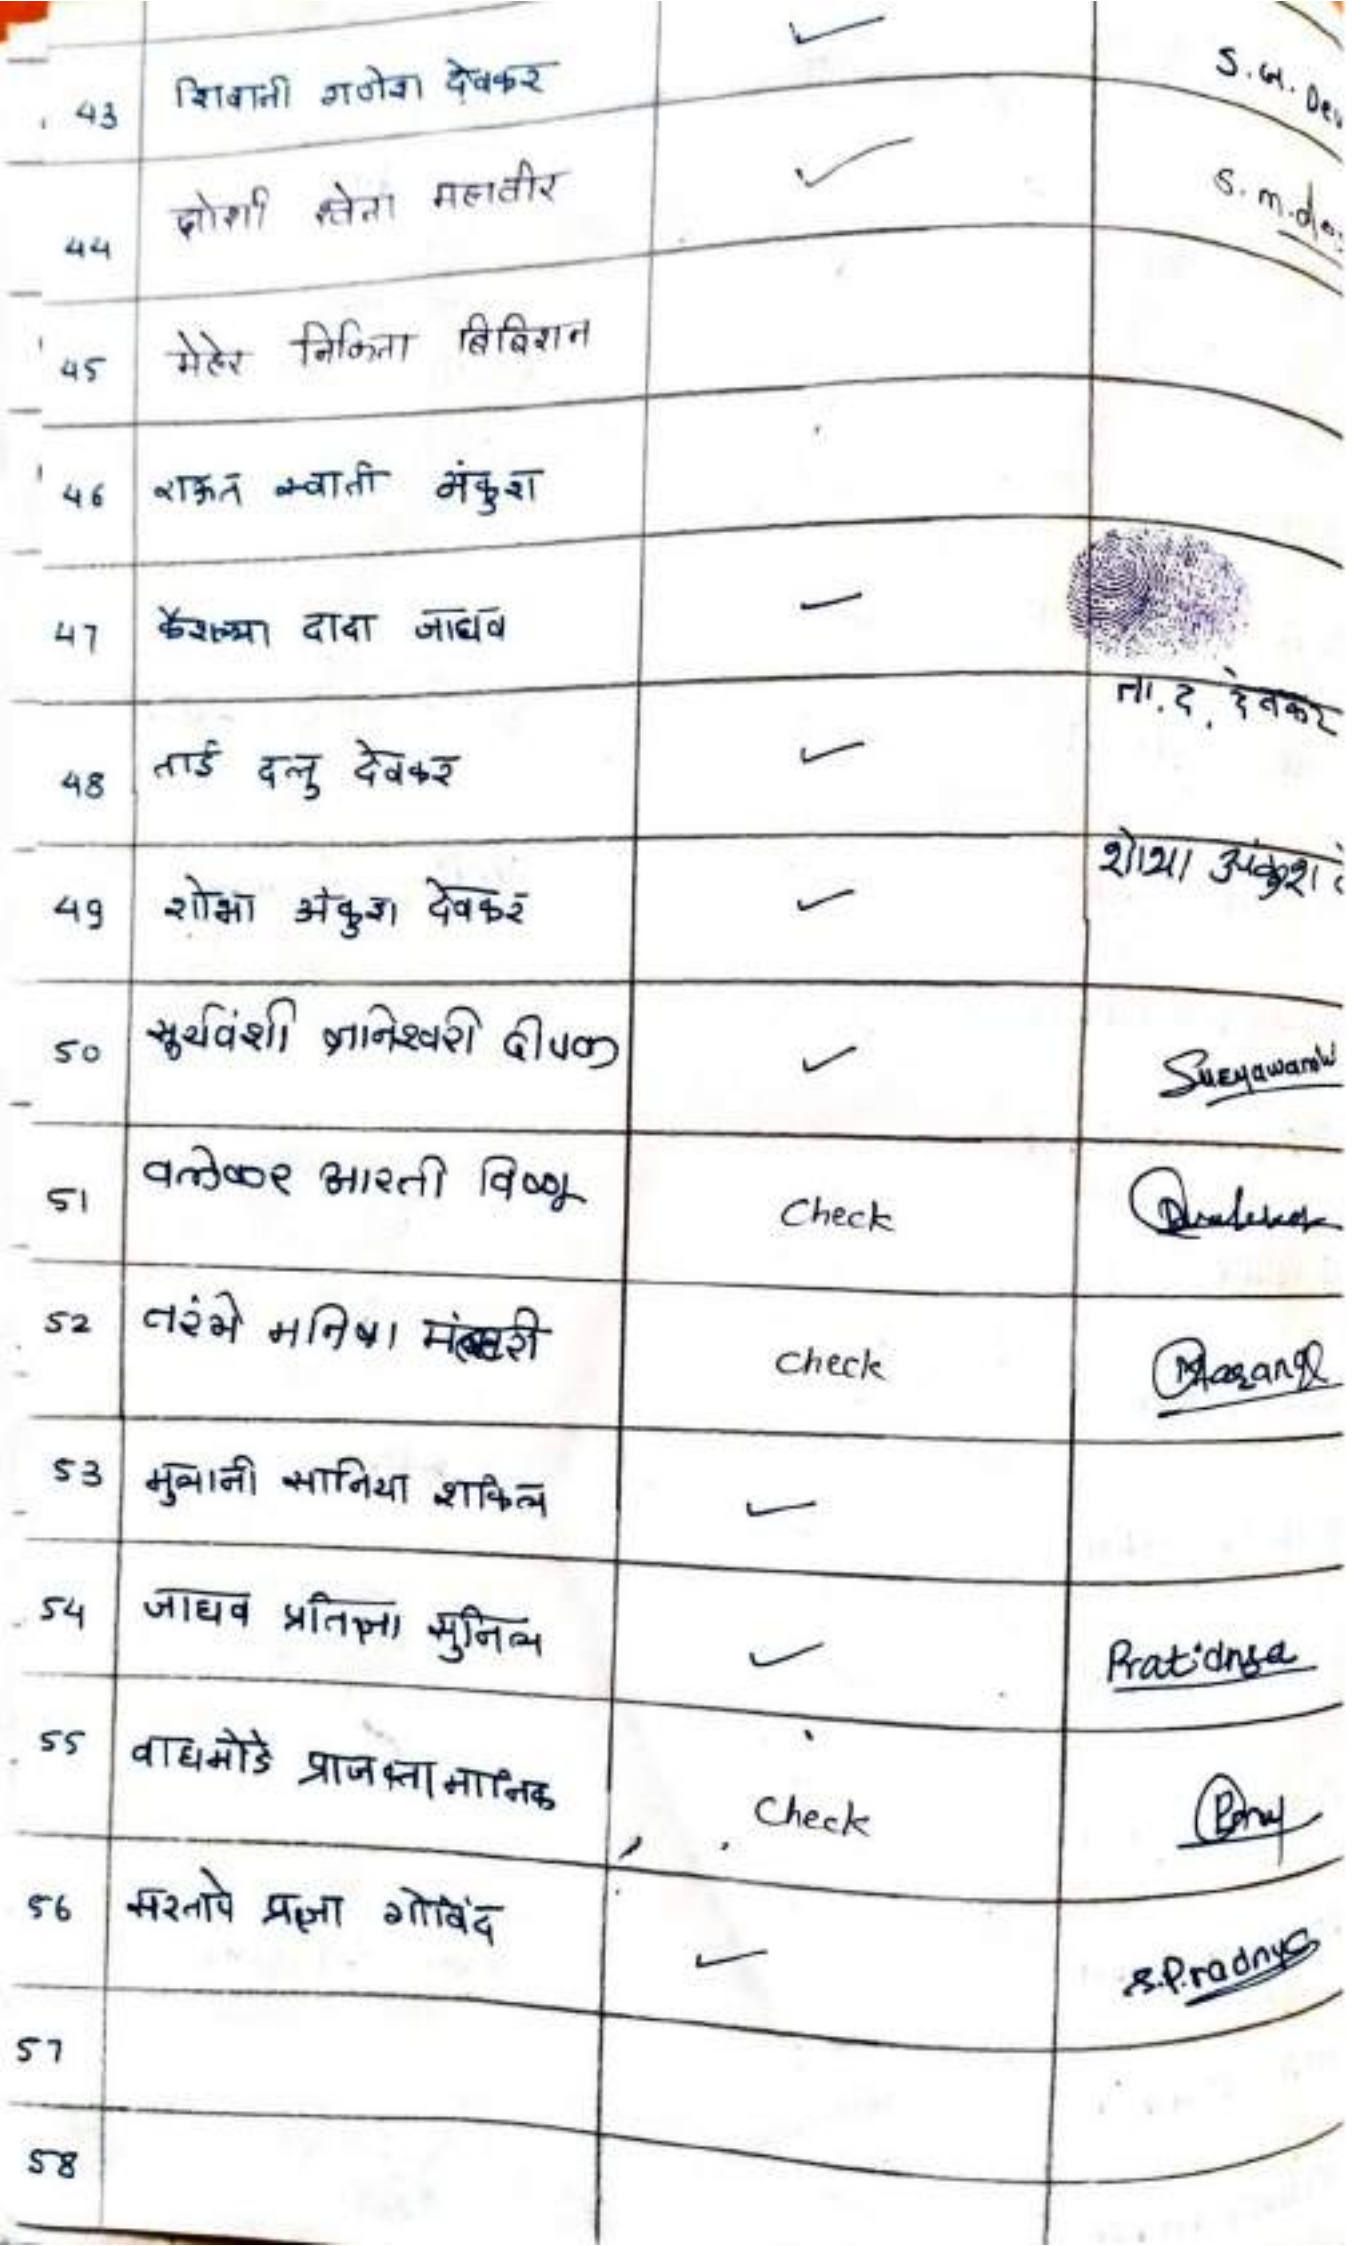 43 शिवानी गणेश देवकर ✓ S.G. Dev
44 दोशी श्वेता महावीर ✓ S.m.do
45 मेहेर निकिता बिबिशन
46 राऊत स्वाती अंकुश
47 कैशल्या दादा जाधव ✓
48 ताई दत्तु देवकर ✓ ता.द. देवकर
49 शोभा अंकुश देवकर ✓ शोभा अंकुश
50 सूर्यवंशी ज्ञानेश्वरी दीपक ✓ Suryawans
51 वलेकर आरती विष्णू Check
52 तरंगे मनिषा Check
53 मुलानी सानिया शकिल ✓
54 जाधव प्रतिज्ञा सुनिल ✓ Pratidnya
55 वाघमोडे प्राजक्ता मानिक Check
56 सरतापे प्रज्ञा गोविंद ✓ S.Pradnya
57
58